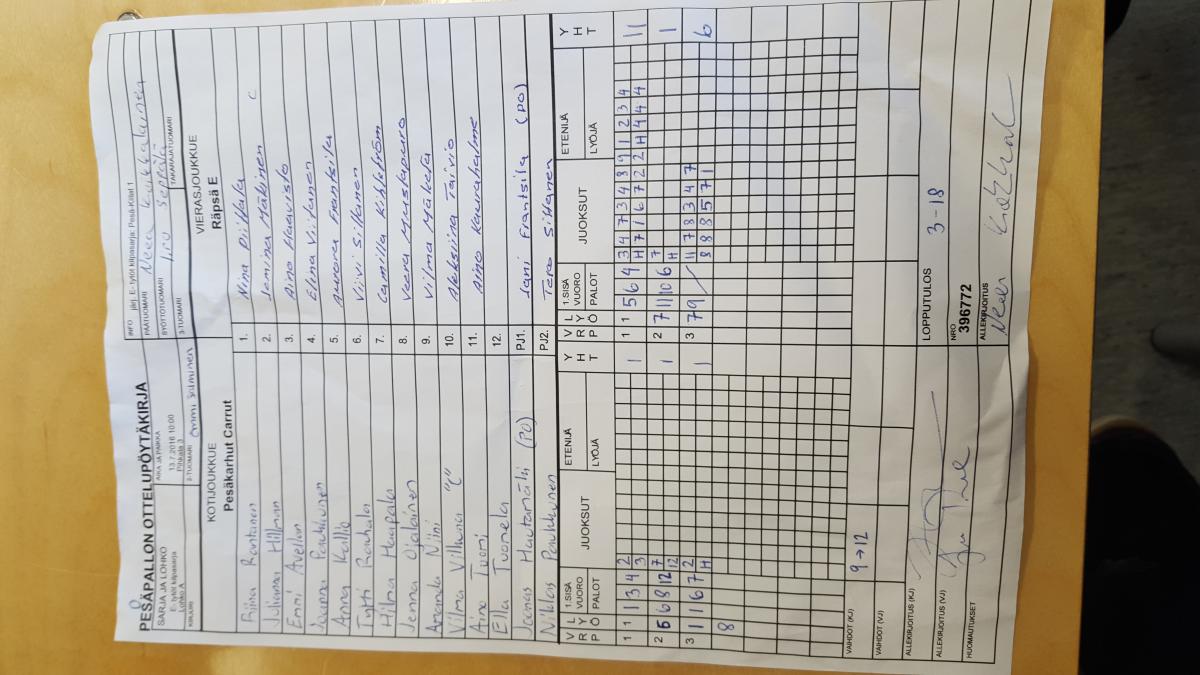 PESÄPALLON OTTELUPÖYTÄKIRJA
SARJA JA LOHKO
E- tytöt kilpasarja
Lohko A
AIKA JA PAIKKA
13.7.2016 10:00
Pihkala 3
INFO järj. E- tytöt kilpasarja: Pesä-Kiilat 1
PÄÄTUOMARI Neea
SYÖTTÖTUOMARI Iiro Seppälä
TAKARAJATUOMARI
KIRJURI
2-TUOMARI Ommi Salminen
3-TUOMARI
KOTIJOUKKUE
Pesäkarhut Carrut
VIERASJOUKKUE
Räpsä E
Riina Rantanen 1. Nina Piilola C
Julianna Hillman 2. Jemina Mäkinen
Emmi Avellan 3. Aino Haavisto
Jaana Paukkunen 4. Elina Viitanen
Anna Kallio 5. Aurora Frantsila
Tytti Rauhala 6. Viivi Siltanen
Hilma Haapala 7. Camilla Kihlström
Jenna Ojalainen 8. Veera Mustapuro
Amanda Niini 9. Vilma Mäkelä
Vilma Villanua "C" 10. Aleksiina Taivio
Aino Tuomi 11. Aino Kauvahalme
Ella Tuomela 12.
Joonas Hautamäki (PO) PJ1. Jani Frantsila (PO)
Niklas Paukkunen PJ2. Tero Siltanen
VRP LYÖ 1.SISÄ VUORO PALOT JUOKSUT ETENIJÄ LYÖJÄ YHT VRP LYÖ 1.SISÄ VUORO PALOT JUOKSUT ETENIJÄ LYÖJÄ YHT
1 1 1 3 4 2 1 1 1 5 6 4 3 4 7 3 4 8 9 1 2 3 4 11
3 H 7 1 6 7 2 2 H 4 4 4
2 5 6 8 12 7 1 2 7 11 10 6 7 1
12 H
3 1 1 6 7 2 1 3 7 9 / 11 7 8 3 4 7 6
H 8 8 8 5 7 1
8
VAIHDOT (KJ) 9→12
VAIHDOT (VJ)
ALLEKIRJOITUS (KJ)
LOPPUTULOS 3-18
ALLEKIRJOITUS (VJ)
NRO
396772
HUOMAUTUKSET
ALLEKIRJOITUS Neea